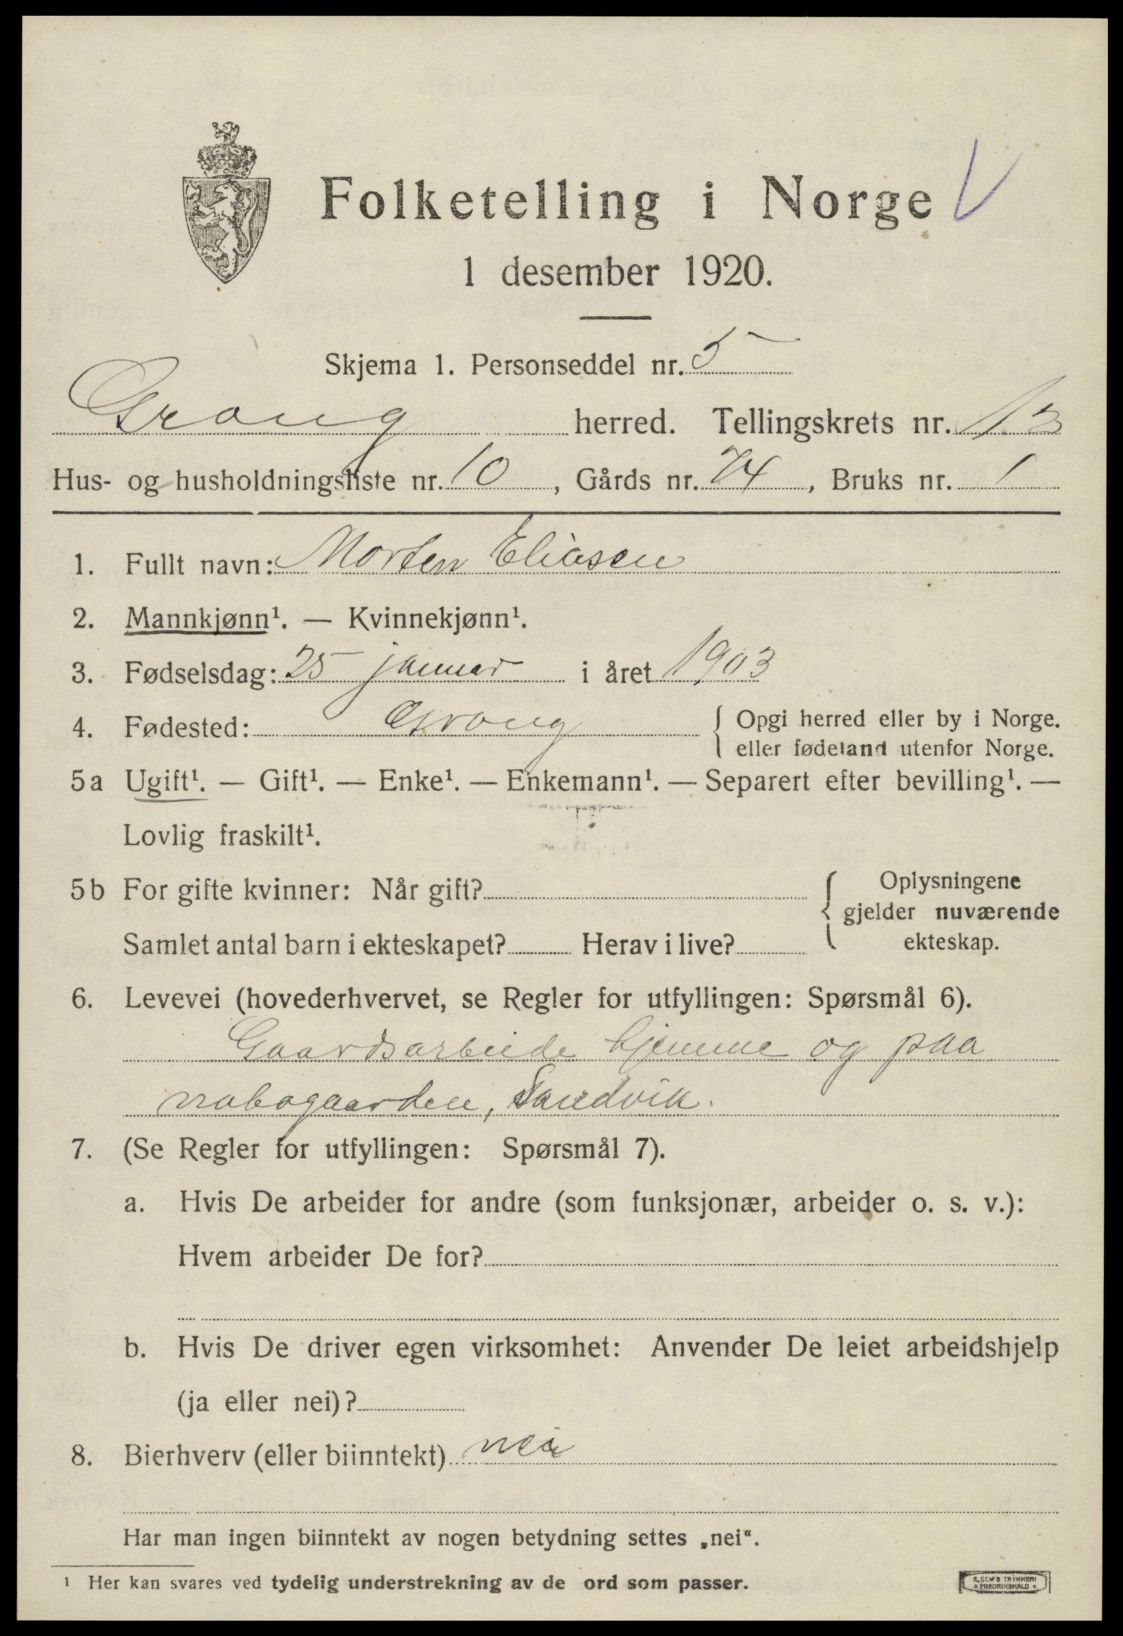 Folketelling i Norge
1 desember 1920.
Skjema 1. Personseddel nr. 5
Grong herred. Tellingskrets nr. 13
Hus- og husholdningsliste nr. 10, Gårds nr. 74, Bruks nr. 1
1. Fullt navn: Morten Eliasen
2. Mannkjønn¹. — Kvinnekjønn¹.
3. Fødselsdag: 25 januar i året 1903
4. Fødested: Grong { Opgi herred eller by i Norge.
eller fødeland utenfor Norge.
5a Ugift¹. — Gift¹. — Enke¹. — Enkemann¹. — Separert efter bevilling¹. —
Lovlig fraskilt¹.
5b For gifte kvinner: Når gift? { Oplysningene
gjelder nuværende
Samlet antal barn i ekteskapet? Herav i live? ekteskap.
6. Levevei (hovederhvervet, se Regler for utfyllingen: Spørsmål 6).
Gaardsarbeide hjemme og paa
nabogaarden, Sandvik.
7. (Se Regler for utfyllingen: Spørsmål 7).
a. Hvis De arbeider for andre (som funksjonær, arbeider o. s. v.):
Hvem arbeider De for?
b. Hvis De driver egen virksomhet: Anvender De leiet arbeidshjelp
(ja eller nei)?
8. Bierhverv (eller biinntekt) nei
Har man ingen biinntekt av nogen betydning settes „nei“.
¹ Her kan svares ved tydelig understrekning av de ord som passer.